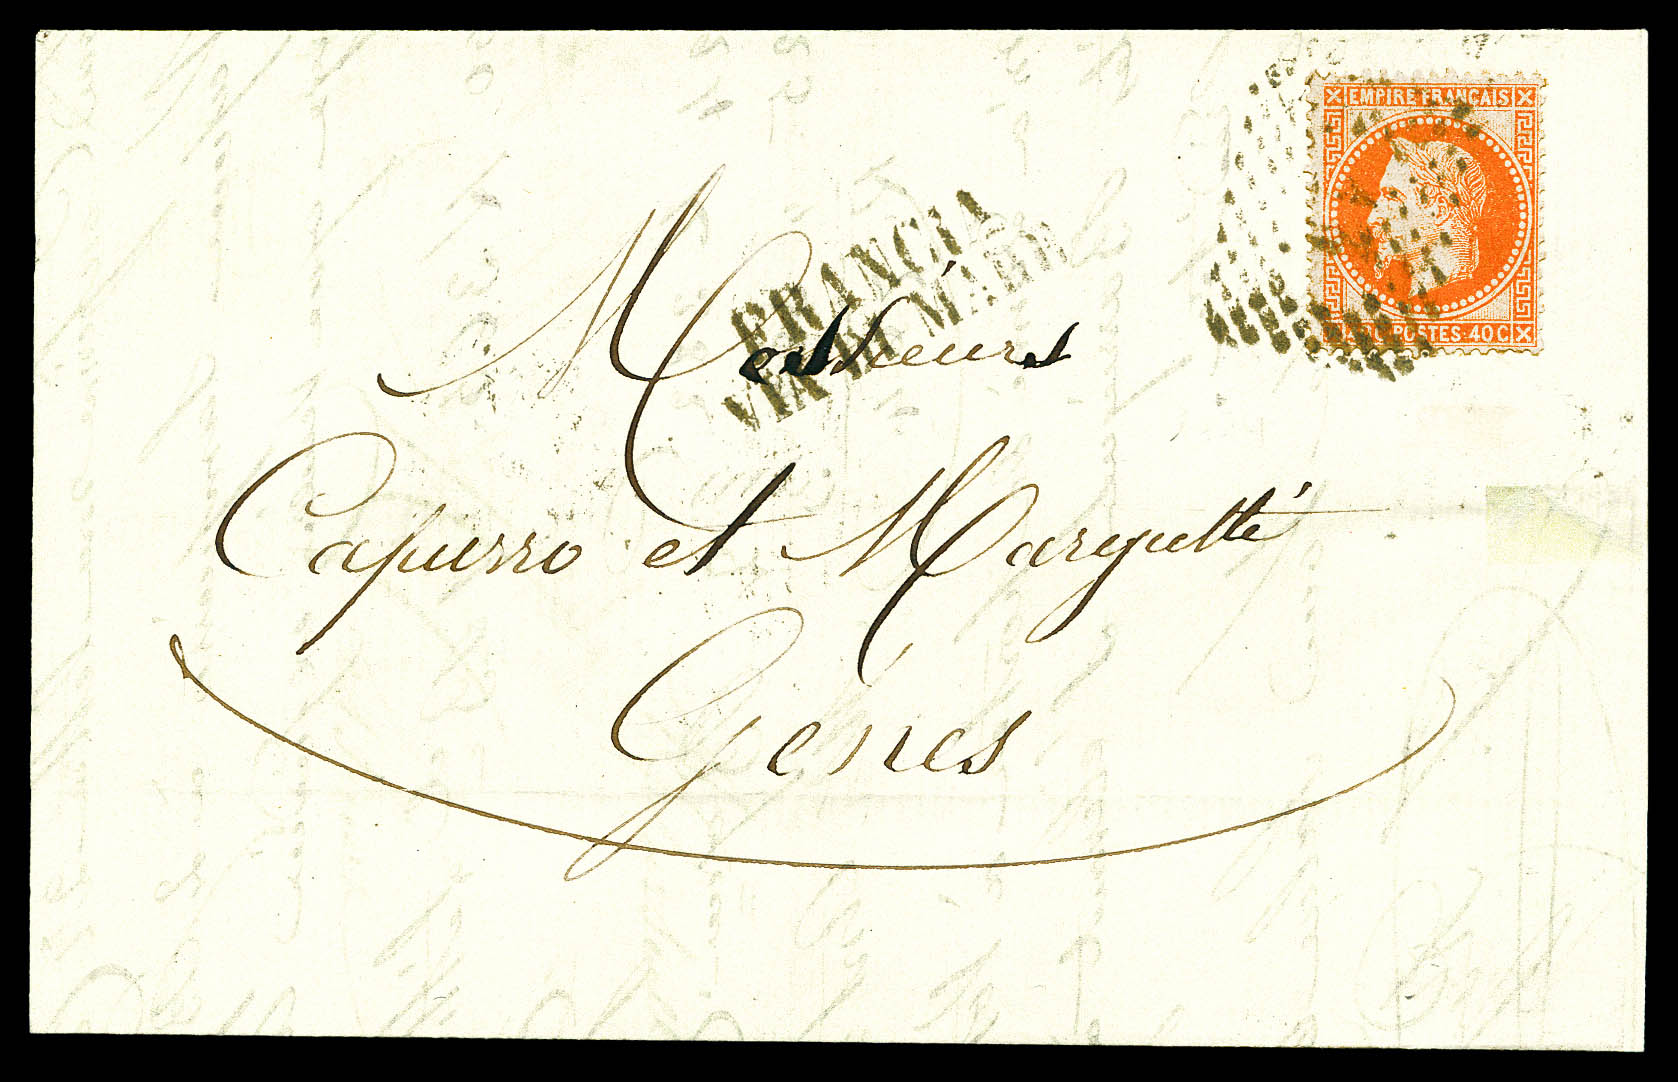 EMPIRE FRANÇAIS
POSTES 40 C
FRANCIA
VIA DI MARE
Messieurs
Capurro et Marguetté
Gênes